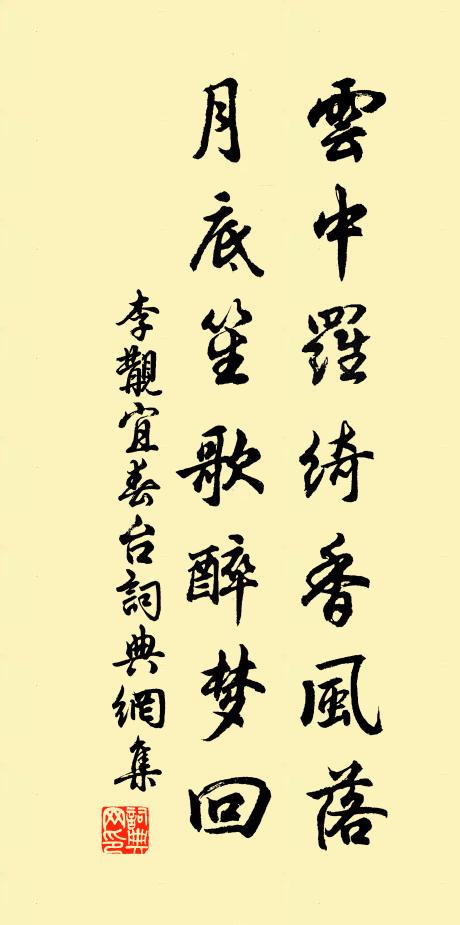 雲中羅綺香風落
月底笙歌醉梦回
李觀宜春台詞典網集
詞典网印